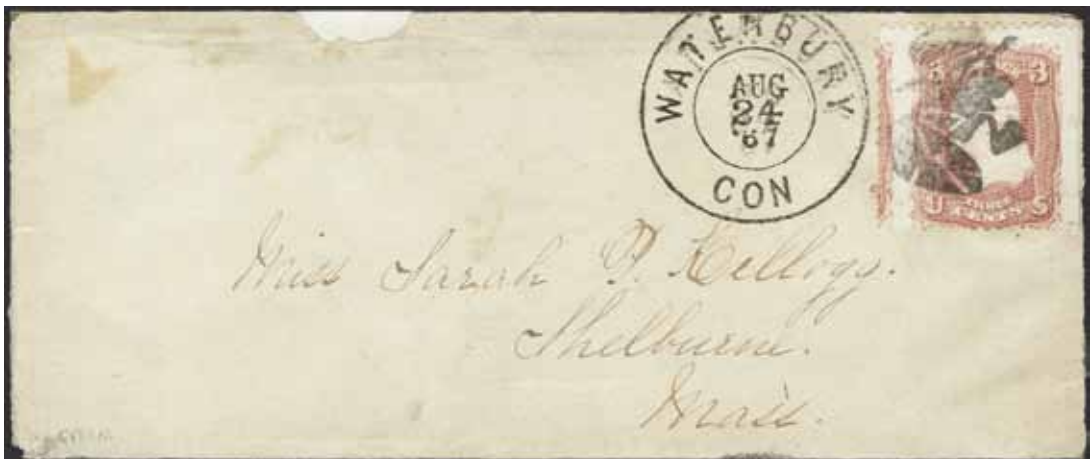 WATERBURY
AUG
24
'67
CON
3
U S
THREE
CENTS
Miss Sarah P. Kellogg.
Shelburne.
Mass.